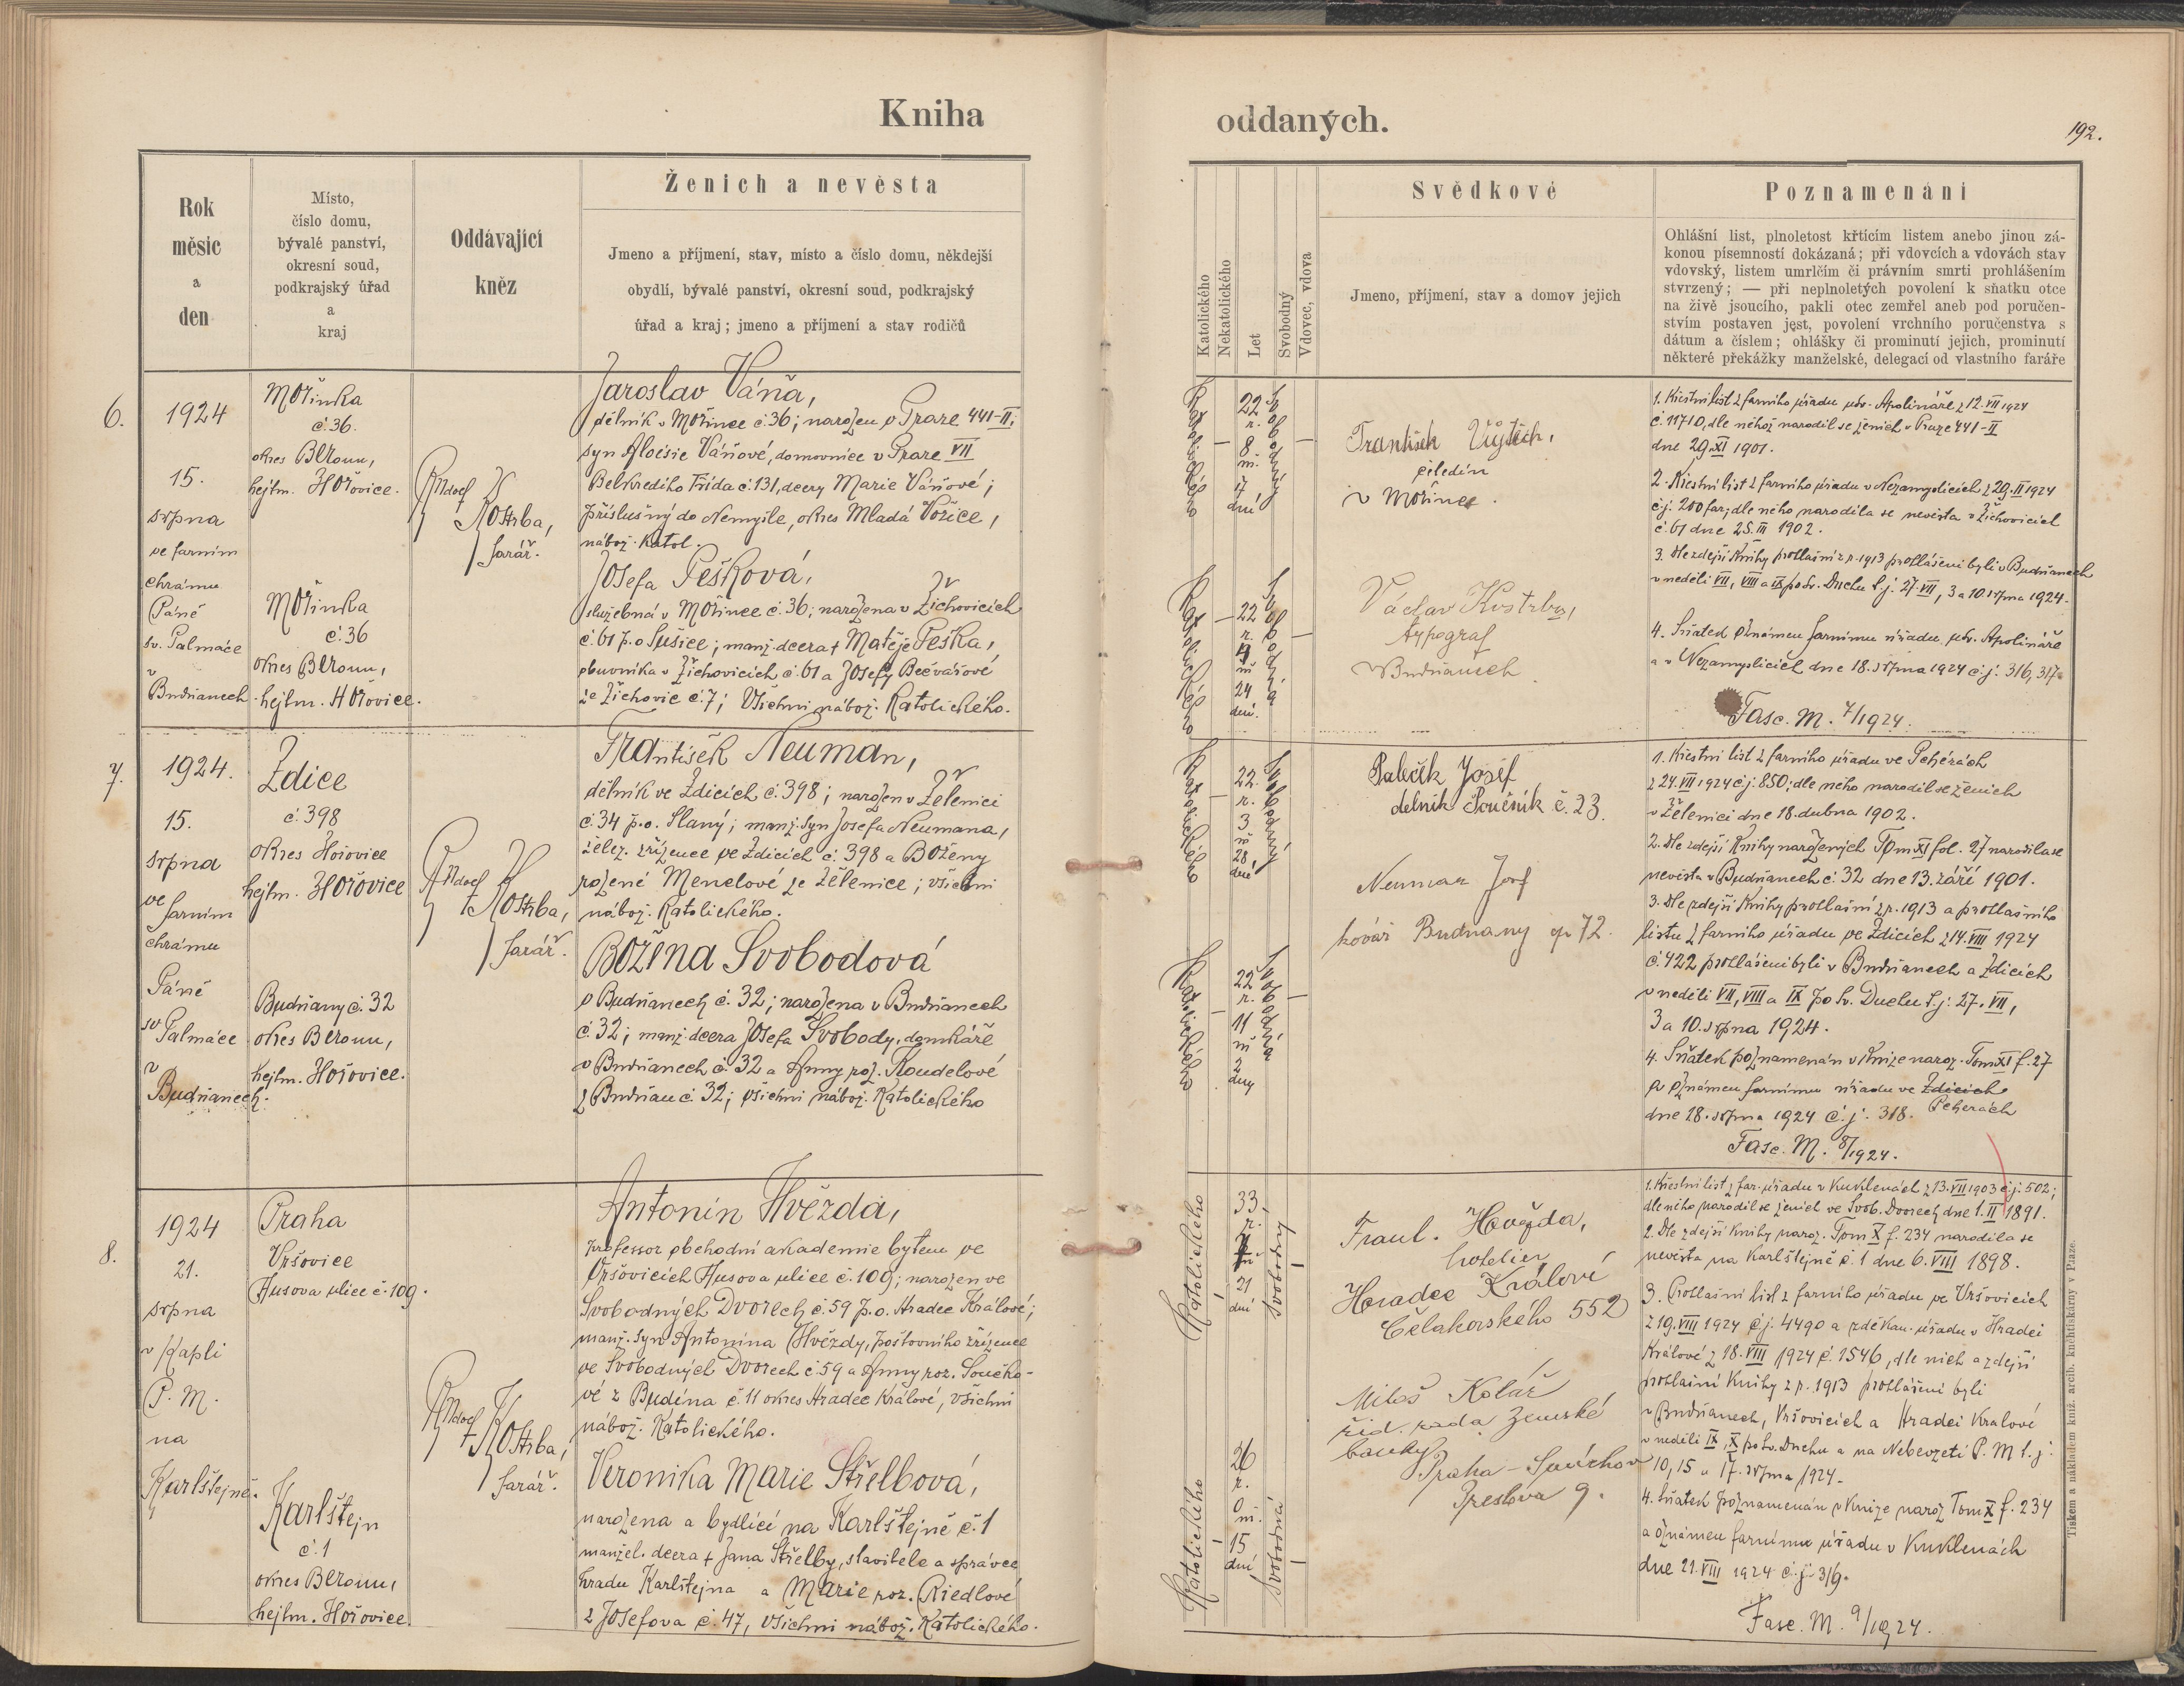 Kniha
oddaných.
192.
Rok
měsíc
a
den
Místo,
číslo domu,
bývalé panství,
okresní soud,
podkrajský úřad
a
kraj
Oddávající
kněz
Ženich a nevěsta
Jmeno a příjmení, stav, místo a číslo domu, někdejší
obydlí, bývalé panství, okresní soud, podkrajský
úřad a kraj; jmeno a příjmení a stav rodičů
Katolického
Nekatolického
Let
Svobodný
Vdovec, vdova
Svědkové
Jmeno, příjmení, stav a domov jejich
Poznamenání
Ohlášní list, plnoletost křtícím listem anebo jinou zá-
konou písemností dokázaná; při vdovcích a vdovách stav
vdovský, listem umrlčím či právním smrti prohlášením
stvrzený; — při neplnoletých povolení k sňatku otce
na živě jsoucího, pakli otec zemřel aneb pod poručen-
stvím postaven jest, povolení vrchního poručenstva s
dátum a číslem; ohlášky či prominutí jejich, prominutí
některé překážky manželské, delegací od vlastního faráře
6.
1924
15.
srpna
ve farním
chrámu
Páně
sv. Palmáce
v
Budňanech
Mořinka
č. 36.
okres Beroun,
hejtm. Hořovice.
Mořinka
č. 36
okres Beroun,
hejtm. Hořovice.
Rudolf
Kostrba,
farář.
Jaroslav Váňa,
dělník v Mořince č. 36; narozen v Praze 441-II;
syn Aloisie Váňové, domovnice v Praze VII
Belkrediho třída č. 131, dcery Marie Váňové;
příslušný do Nemyšle, okres Mladá Vožice,
nábož. katol.
Josefa Pešková,
služebná v Mořince č. 36; narozena v Žichovicích
č. 61 p. o Sušice; manž. dcera † Matěje Peška,
obuvníka v Žichovicích č. 61 a Josefy Bečvářové
ze Žichovic č. 7; všichni nábož. Katolického.
Katolického
22
r.
8
m.
17
dní
Svobodný
Katolického
22
r.
m
24
dní.
Svobodná
František Vojtěch,
čeledín
v Mořince.
Václav Kostrba,
typograf
v Budňanech
1. Křestní list z farního úřadu u sv. Apolináře z 12. VII 1924
č. 11710, dle něhož narodil se ženich v Praze 441-II
dne 29. XI 1901.
2. Křestní list z farního úřadu v Nezamyslicích z 29. II 1924
č. j. 200 far; dle něho narodila se nevěsta v Žichovicích
č. 61 dne 25. II 1902.
3. Dle zdejší Knihy prohlašní z r. 1913 prohlášeni byli v Budňanech
v neděli VII, VIII a IX po Sv. Duchu t. j. 27. VII, 3 a 10. srpna 1924.
4. Sňatek oznámen farnímu úřadu u sv. Apolináře
a v Nezamyslicích dne 18. srpna 1924 č. j. 316, 317.
Fasc. M. 7/1924.
7.
1924.
15.
srpna
ve
farním
chrámu
Páně
sv Palmáce
v
Budňanech.
Zdice
č. 398
okres Hořovice
hejtm. Hořovice
Budňany č. 32
okres Beroun,
hejtm. Hořovice.
Rudolf
Kostrba,
farář.
František Neuman,
dělník ve Zdicích č. 398; narozen v Želenici
č. 34 p. o. Slaný; manž. syn Josefa Neumana,
želez. zřízence ve Zdicích č. 398 a Boženy
rozené Menclové ze Želenice; všichni
nábož. Katolického.
Božena Svobodová
v Budňanech č. 32; narozena v Budňanech
č. 32; manž. dcera Josefa Svobody, domkáře
v Budňanech č. 32 a Anny roz. Koudelové
z Budňan č. 32; všichni nábož. Katolického
Katolického
22.
r.
3
m
28
dní
Svobodný
Katolického
22
r.
11
m
2
dny
Svobodná
Paleček Josef
delnik Poučník č. 23.
Neuman Josef
kovář Budnany čp 72.
1. Křestní list z farního úřadu ve Pcherách
z 24. VII 1924 č. j. 850; dle něho narodil se ženich
v Želenici dne 18. dubna 1902.
2. Dle zdejší Knihy narozených Tom XI fol. 27 narodila se
nevěsta v Budňanech č. 32 dne 13. září 1901.
3. Dle zdejší Knihy prohlašní z r. 1913 a prohlašního
listu z farního úřadu ve Zdicích z 14. VIII 1924
č. 422 prohlášeni byli v Budňanech a Zdicích
v neděli VII, VIII a IX po Sv. Duchu t. j. 27. VII,
3 a 10. srpna 1924.
4. Sňatek poznamenán v Knize naroz. Tom XI f. 27
a oznámen farnímu úřadu ve Zdicích
Pcherách
dne 18. srpna 1924 č. j. 318.
Fasc. M. 8/1924.
8.
1924
21.
srpna
v Kapli
P. M.
na
Karlštejně.
Praha
Vršovice
Husova ulice č. 109.
Karlštejn
č. 1
okres Beroun,
hejtm. Hořovice.
Rudolf
Kostrba,
farář.
Antonín Hvězda,
professor obchodní akademie bytem ve
Vršovicích Husova ulice č. 109; narozen ve
Svobodných Dvorech č. 59 p. o. Hradec Králové;
manž. syn Antonína Hvězdy, poštovního zřízence
ve Svobodných Dvorech č. 59 a Anny roz. Součko-
vé z Buděna č. 11 okres Hradec Králové, všichni
nábož. Katolického.
Veronika Marie Střelbová,
narozena a bydlící na Karlštejně č. 1
manžel. dcera † Jana Střelby, stavitele a správce
hradu Karlštejna a Marie roz. Riedlové
z Josefova č. 47, všichni nábož. Katolického.
Katolického
33,
r.
21
dní
Svobodný
Katolického
26
r.
0
m.
15
dní
Svobodná
Frant. Hvězda,
hotelier
Hradec Králové
Čelakovského 552
Miloš Kolář
řid. rada Zemské
banky
Praha - Smíchov
Preslova 9.
1. Křestní list z far. úřadu v Kuklenách z 13. VII 1903 č. j. 502;
dle něho narodil se ženich ve Svob. Dvorech dne 1. II 1891.
2. Dle zdejší Knihy naroz. Tom X f. 234 narodila se
nevěsta na Karlštejně č. 1 dne 6. VIII 1898.
3. Prohlašní list z farního úřadu ve Vršovicích
z 19. VIII 1924 č. j. 4490 a z děkan. úřadu v Hradci
Králové z 18. VIII 1924 č. 1546, dle nich a zdejší
prohlašní Knihy z r. 1913 prohlášeni byli
v Budňanech, Vršovicích a Hradci Králové
v neděli IX, X po Sv. Duchu a na Nebevzetí P. M t. j.
10, 15 a 17. srpna 1924.
4. Sňatek poznamenán v Knize naroz Tom X f. 234
a oznámen farnímu úřadu v Kuklenách
dne 21. VIII 1924 č. j. 319.
Fasc. M. 9/1924.
Tiskem a nákladem kniž. arcib. knihtiskárny v Praze.